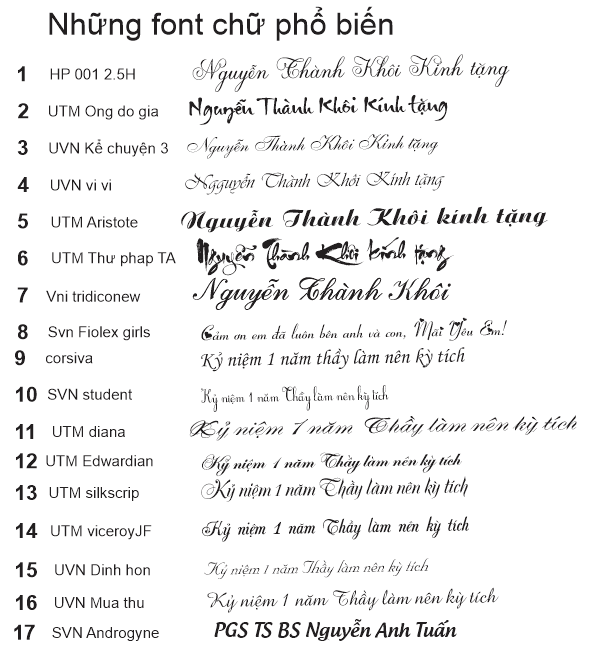 Những font chữ phổ biến
1 HP 001 2.5H Nguyễn Thành Khôi Kính tặng
2 UTM Ong do gia Nguyễn Thành Khôi Kính tặng
3 UVN Kể chuyện 3 Nguyễn Thành Khôi Kính tặng
4 UVN vi vi Ngguyễn Thành Khôi Kính tặng
5 UTM Aristote Nguyễn Thành Khôi kính tặng
6 UTM Thư phap TA Nguyễn Thành Khôi kính tặng
7 Vni tridiconew Nguyễn Thành Khôi
8 Svn Fiolex girls Cảm ơn em đã luôn bên anh và con, Mãi Yêu Em!
9 corsiva Kỷ niệm 1 năm thầy làm nên kỳ tích
10 SVN student Kỷ niệm 1 năm Thầy làm nên kỳ tích
11 UTM diana Kỷ niệm 1 năm Thầy làm nên kỳ tích
12 UTM Edwardian Kỷ niệm 1 năm Thầy làm nên kỳ tích
13 UTM silkscrip Kỷ niệm 1 năm Thầy làm nên kỳ tích
14 UTM viceroyJF Kỷ niệm 1 năm Thầy làm nên kỳ tích
15 UVN Dinh hon Kỷ niệm 1 năm Thầy làm nên kỳ tích
16 UVN Mua thu Kỷ niệm 1 năm Thầy làm nên kỳ tích
17 SVN Androgyne PGS TS BS Nguyễn Anh Tuấn